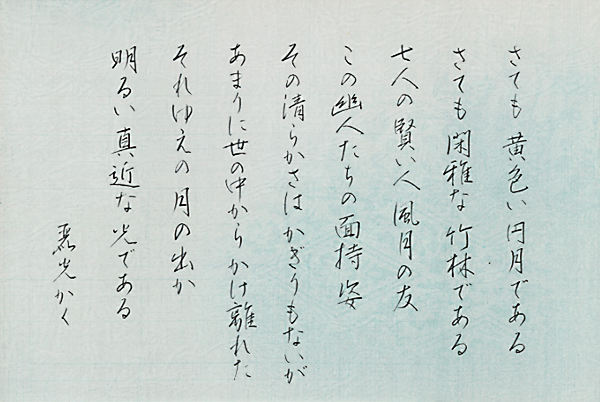 さても黄色い円月である
さても閑雅な竹林である
七人の賢い人風月の友
この幽人たちの面持姿
その清らかさはかぎりもないが
あまりに世の中からかけ離れた
それゆえの月の出か
明るい真近な光である
光かく